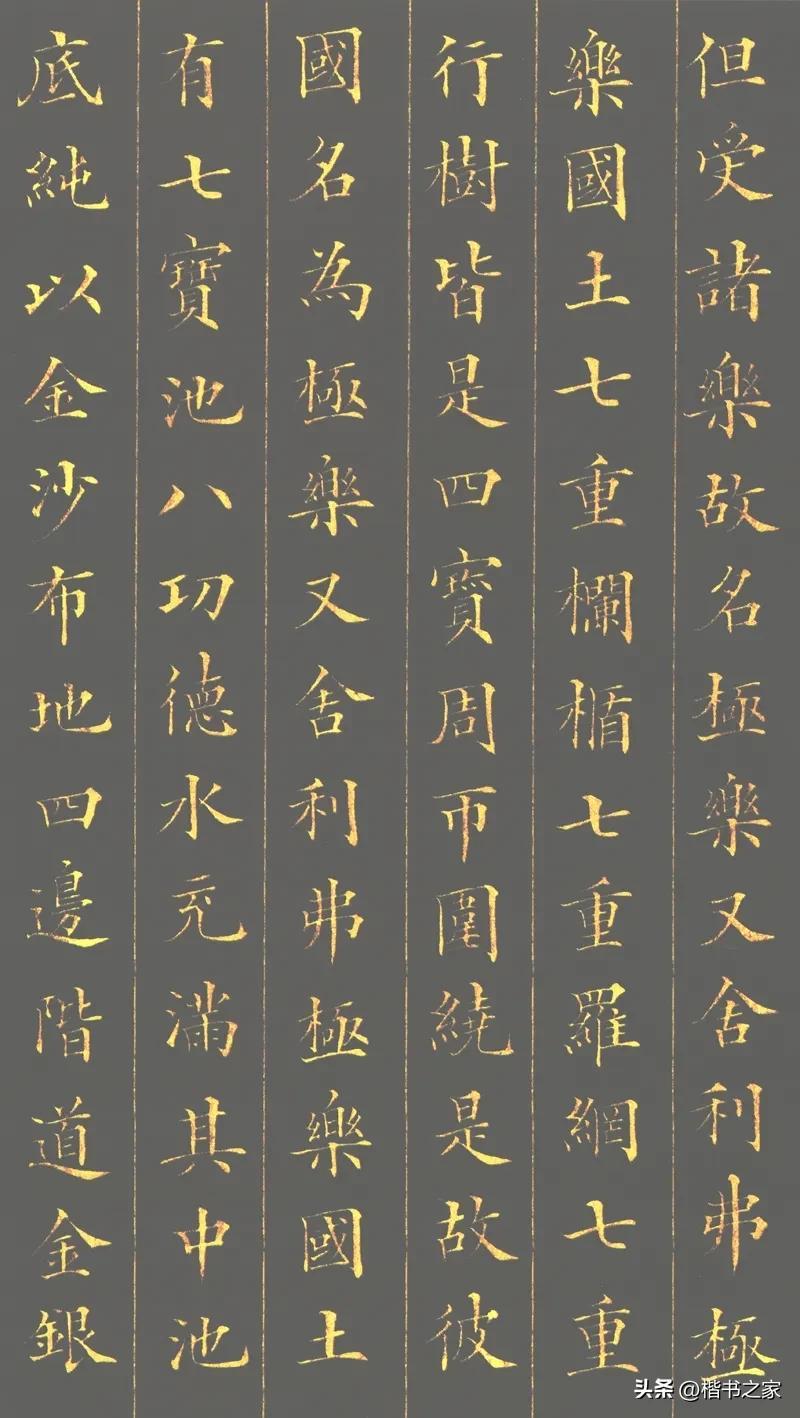 但受諸樂故名極樂又舍利弗極
樂國土七重欄楯七重羅網七重
行樹皆是四寶周帀圍繞是故彼
國名為極樂又舍利弗極樂國土
有七寶池八功德水充滿其中池
底純以金沙布地四邊階道金銀
头条 @楷书之家